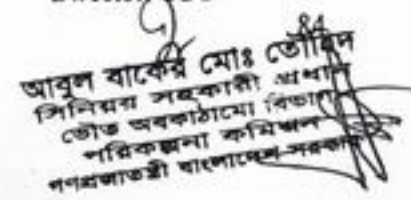 আবুল বাকের মোঃ তৌহিদ
সিনিয়র সহকারী প্রধান
ভৌত অবকাঠামো বিভাগ
পরিকল্পনা কমিশন
গণপ্রজাতন্ত্রী বাংলাদেশ সরকার